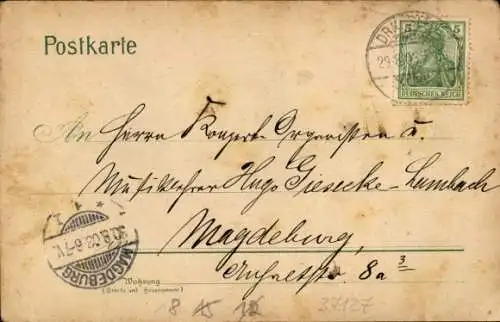 Postkarte
5
DEUTSCHES REICH
29.8.02
An Herrn Konzert-Organisten u.
Musiklehrer Hugo Giesecke-Lambach
Magdeburg,
8a 3
MAGDEBURG
30.8.02.6-7V.
Wohnung
(Straße und Hausnummer)
8 15 12
37127